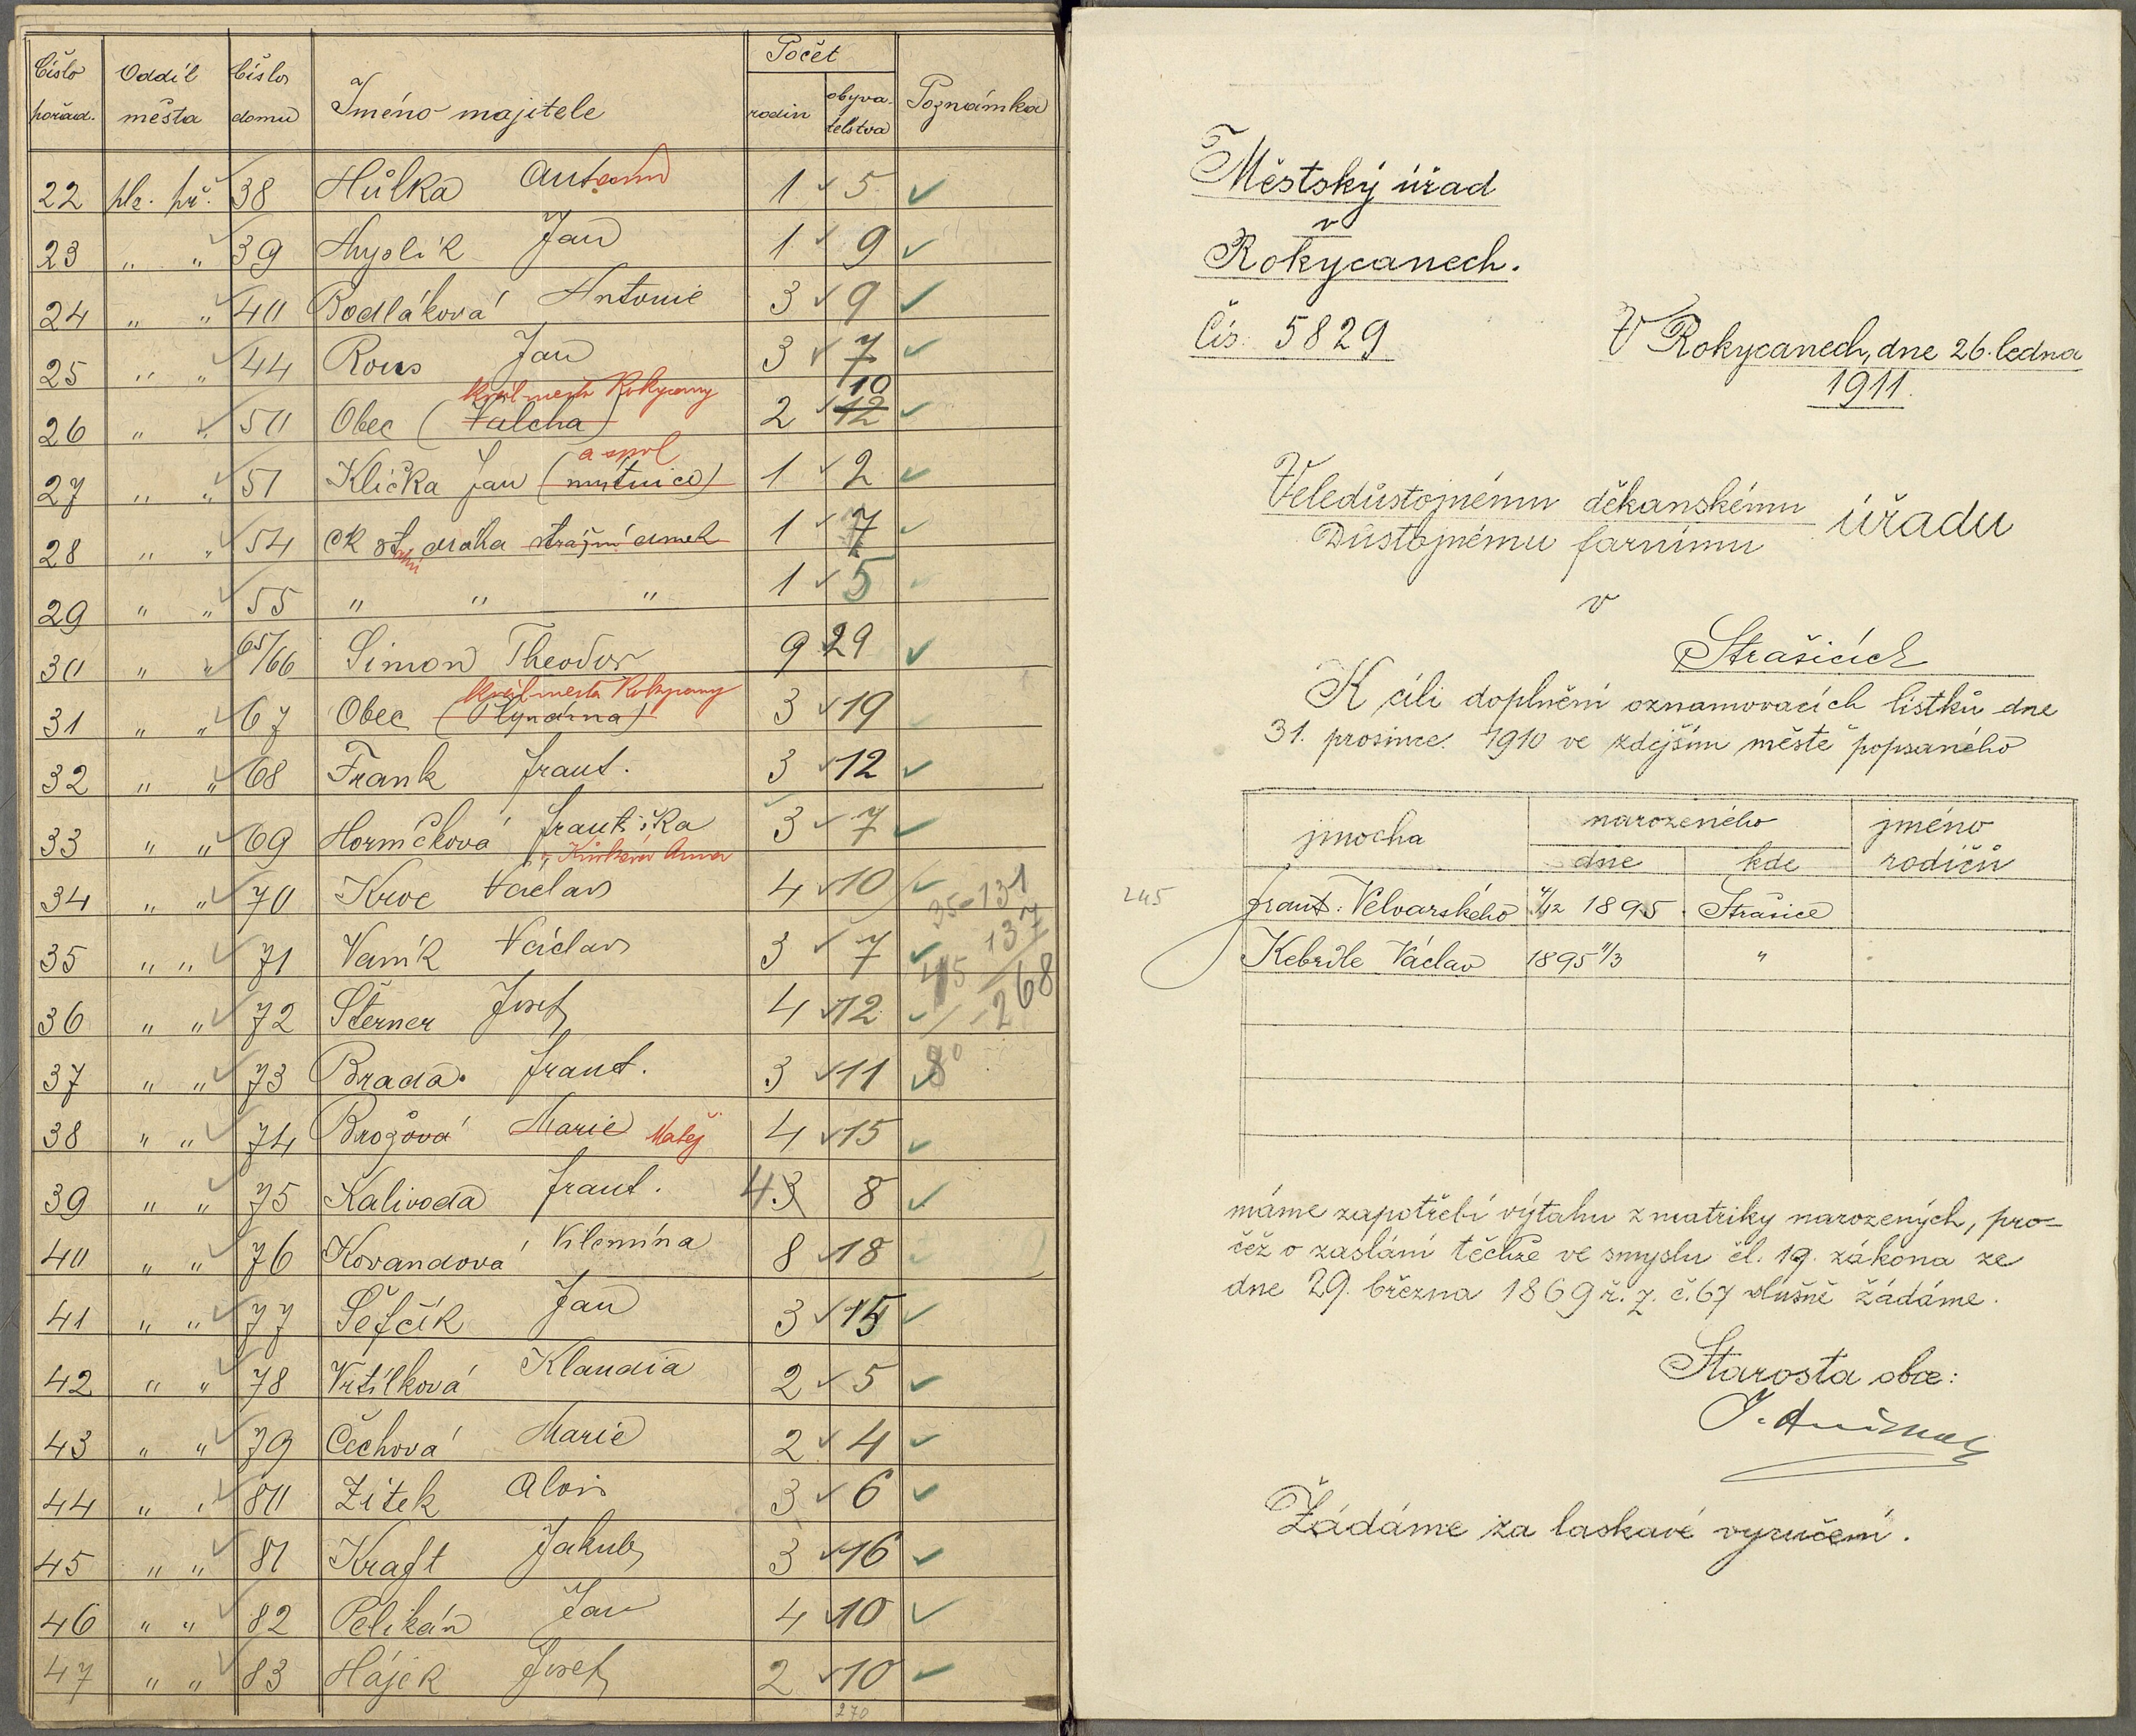 Číslo pořad. Oddíl města Číslo domu Jméno majitele Počet rodin obyva-telstva Poznámka
22 plz. př. 38 Hůlka Antonín 1 5
23 " " 39 Myslík Jan 1 9
24 " " 40 Bodláková Antonie 3 9
25 " " 44 Rous Jan 3 7
král města Rokycany 10
26 " " 50 Obec (Valcha) 2 12
a spol
27 " " 51 Klička Jan (mýtnice) 1 2
28 " " 54 CK st dráha strážní domek 1 7
29 " " 55 " " " 1 5
30 " " 65/66 Simon Theodor 9 29
král města Rokycany
31 " " 67 Obec (Plynárna) 3 19
32 " " 68 Frank Frant. 3 12
33 " " 69 Horníčková Františka 3 7
Anna
34 " " 70 Krve Václav 4 10
35-131
35 " " 71 Vaník Václav 3 7
137
45
268
36 " " 72 Šterner Josef 4 12
37 " " 73 Brada Frant. 3 11
80
38 " " 74 Brožová Marie Matěj 4 15
39 " " 75 Kalivoda Frant. 4 3 8
40 " " 76 Kovandová Vilemína 8 18
41 " " 77 Šefčík Jan 3 15
42 " " 78 Vrtílková Klaudia 2 5
43 " " 79 Čechová Marie 2 4
44 " " 80 Žítek Alois 3 6
45 " " 81 Kraft Jakub 3 16
46 " " 82 Pelikán Jan 4 10
47 " " 83 Hájek Josef 2 10
270
Městský úřad
v
Rokycanech.
Čís. 5829
V Rokycanech, dne 26. ledna
1911.
Veledůstojnému děkanskému
Důstojnému farnímu
úřadu
v
Strašicích
K cíli doplnění oznamovacích lístků dne
31. prosince 1910 ve zdejším městě popsaného
jinocha narozeného jméno rodičů
dne kde
245 Frant. Velvarského 4/12 1895 Strašice
Kebrdle Václav 1895 11/3 "
máme zapotřebí výtahu z matriky narozených, pro-
čež o zaslání těchže ve smyslu čl. 19. zákona ze
dne 29. března 1869 ř. z. č. 67 slušně žádáme.
Starosta obce:
Žádáme za laskavé vyručení.